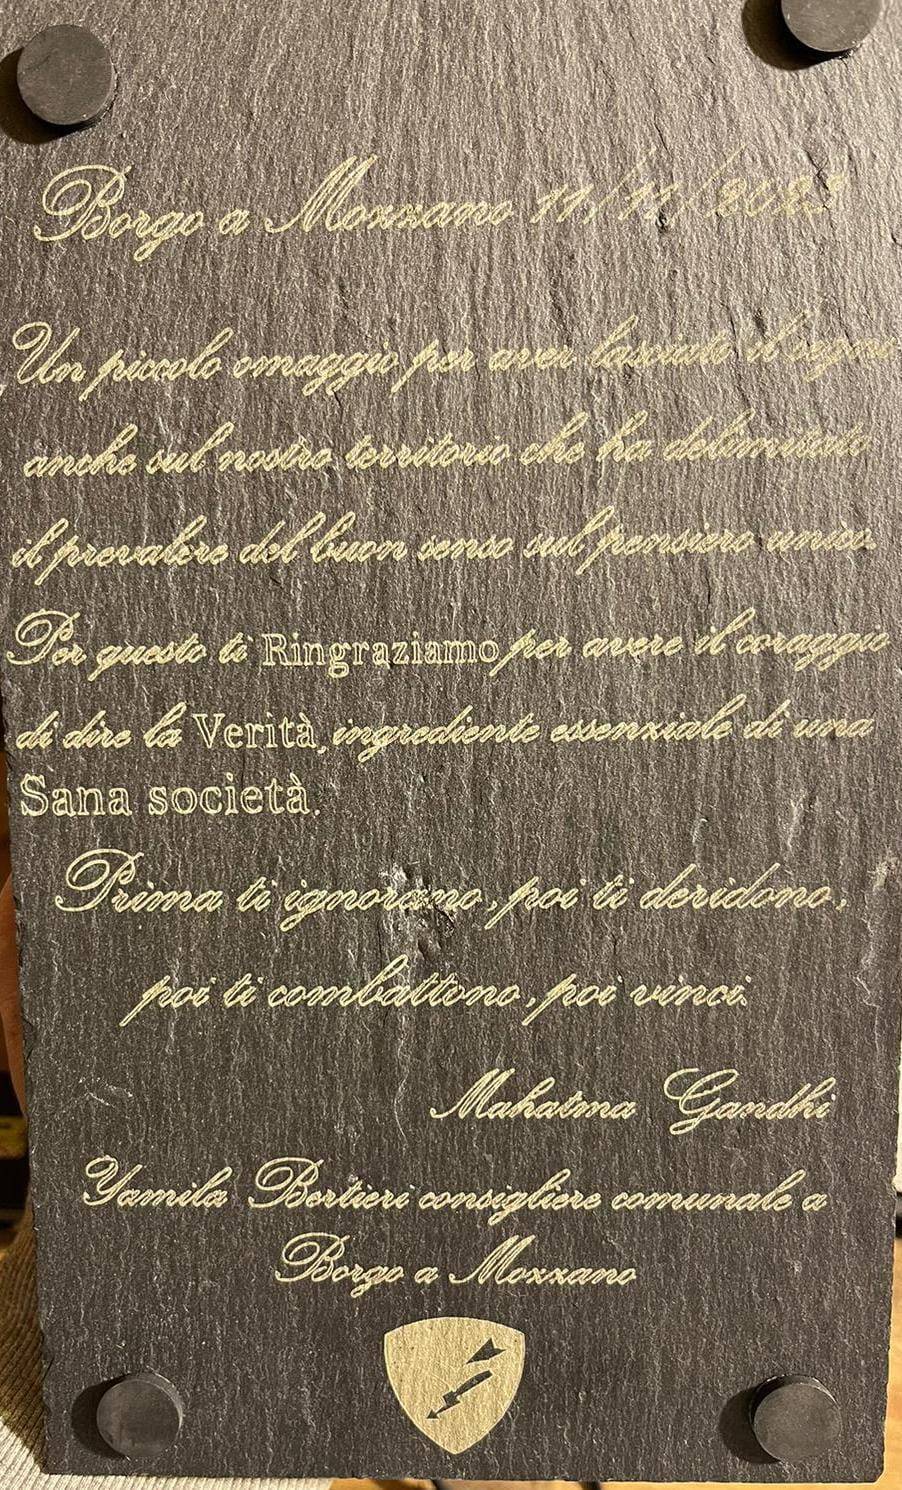 Borgo a Mozzano 11/11/2023
Un piccolo omaggio per aver lasciato il segno
anche sul nostro territorio che ha delimitato
il prevalere del buon senso sul pensiero unico.
Per questo ti Ringraziamo per avere il coraggio
di dire la Verità, ingrediente essenziale di una
Sana società.
Prima ti ignorano, poi ti deridono,
poi ti combattono, poi vinci.
Mahatma Gandhi
Yamila Bertieri consigliere comunale a
Borgo a Mozzano